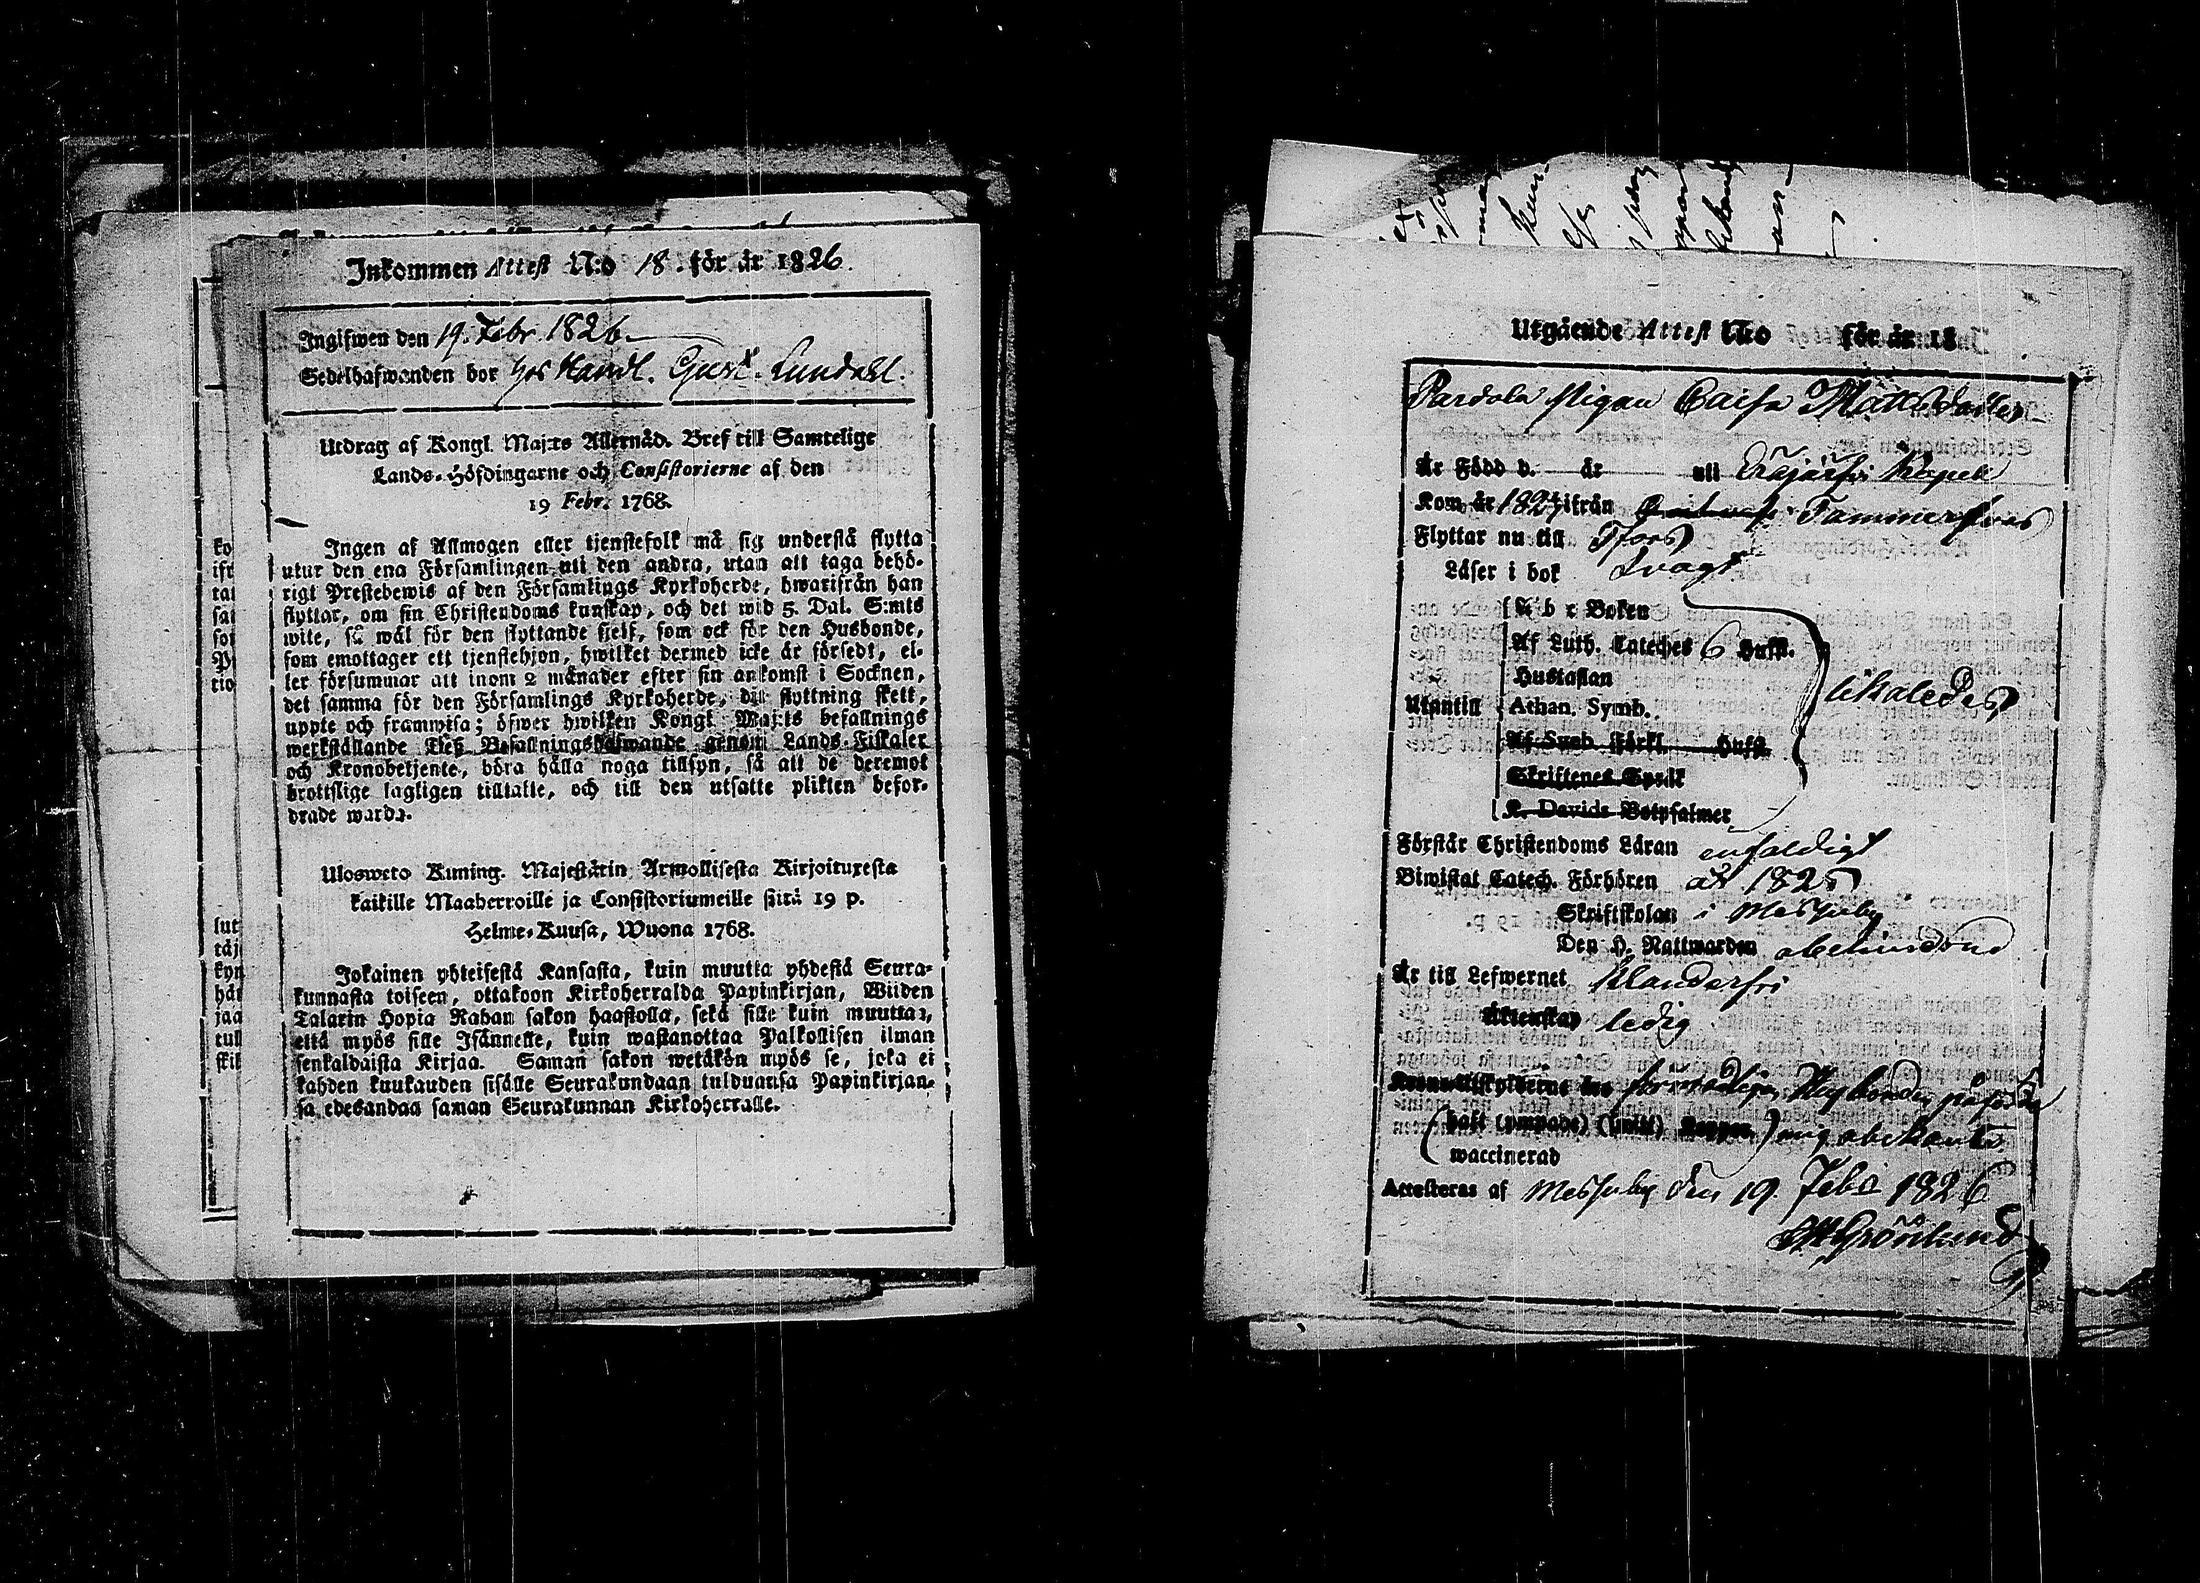 Inkommen Attest N:o 18. för år 1826.
Ingifwen den 19. Febr. 1826.
Sedelhafwanden bor hos Handl. Gust. Lundahl.
Utdrag af Kongl. Maj:ts Allernåd. Bref till Samtelige
Lands-Höfdingarne och Consistorierne af den
19 Febr. 1768.
Ingen af Allmogen eller tjenstefolk må sig understå flytta
utur den ena Församlingen uti den andra, utan att taga behö-
rigt Prestebewis af den Församlings Kyrkoherde, hwarifrån han
flyttar, om sin Christendoms kunskap, och det wid 5. Dal. S:mts
wite, så wäl för den flyttande sjelf, som ock för den Husbonde,
som emottager ett tjenstehjon, hwilket dermed icke är försedt, el-
ler försummar att inom 2 månader efter sin ankomst i Socknen,
det samma för den Församlings Kyrkoherde, dit flyttning skett,
uppte och framwisa; öfwer hwilken Kongl. Maj:ts befallnings
werkställande Dess Befallningshafwande genom Lands-Fiskaler
och Kronobetjente, böra hålla noga tillsyn, så att de deremot
brottslige lagligen tilltalte, och till den utsatte plikten befor-
drade warda.
Uloswcto Kuning. Majestätin Armollisesta Kirjoituxesta
kaikille Maaherroille ja Consistoriumeille siitä 19 p.
Helme-Kuusa, Wuona 1768.
Jokainen yhteisestä Kansasta, kuin muutta yhdestä Seura-
kunnasta toiseen, ottakoon Kirkoherralda Papinkirjan, Wiiden
Talarin Hopia Rahan sakon haastolla, sekä sille kuin muuttaa,
että myös sille Isännelle, kuin wastanottaa Palkollisen ilman
senkaldaista Kirjaa. Saman sakon wetäkön myös se, joka ei
kahden kuukauden sisälle Seurakundaan tulduansa Papinkirjan-
sa edesandaa saman Seurakunnan Kirkoherralle.
Utgående Attest N:o för år 18
Pardola Pigan Caisa Mattsdotter
Är Född d. år uti Eräjärfvi Kapell
Kom år 1824 ifrån Tammerfors
Flyttar nu till Tfors
Läser i bok Svagt
A b c Boken
Af Luth. Cateches 6 Hufst.
Hustaflan
Utantill Athan. Symb. likaledes
Af Sveb. Förkl. Hufst.
Skriftenes Språk
K. Davids Botpsalmer
Förstår Christendoms Läran enfaldigt
Biwistat Catech. Förhören år 1825
Skriftskolan i Messuby
Den H. Nattwarden obehindrad
Är till Lefwernet Klanderfri
Äktenskap ledig
Krono-Utskylderne äro
(haft (ympade) (sinll) Koppor) mig obekant
waccinerad
Attesteras af Messuby den 19 Febr 1826
Grönlund